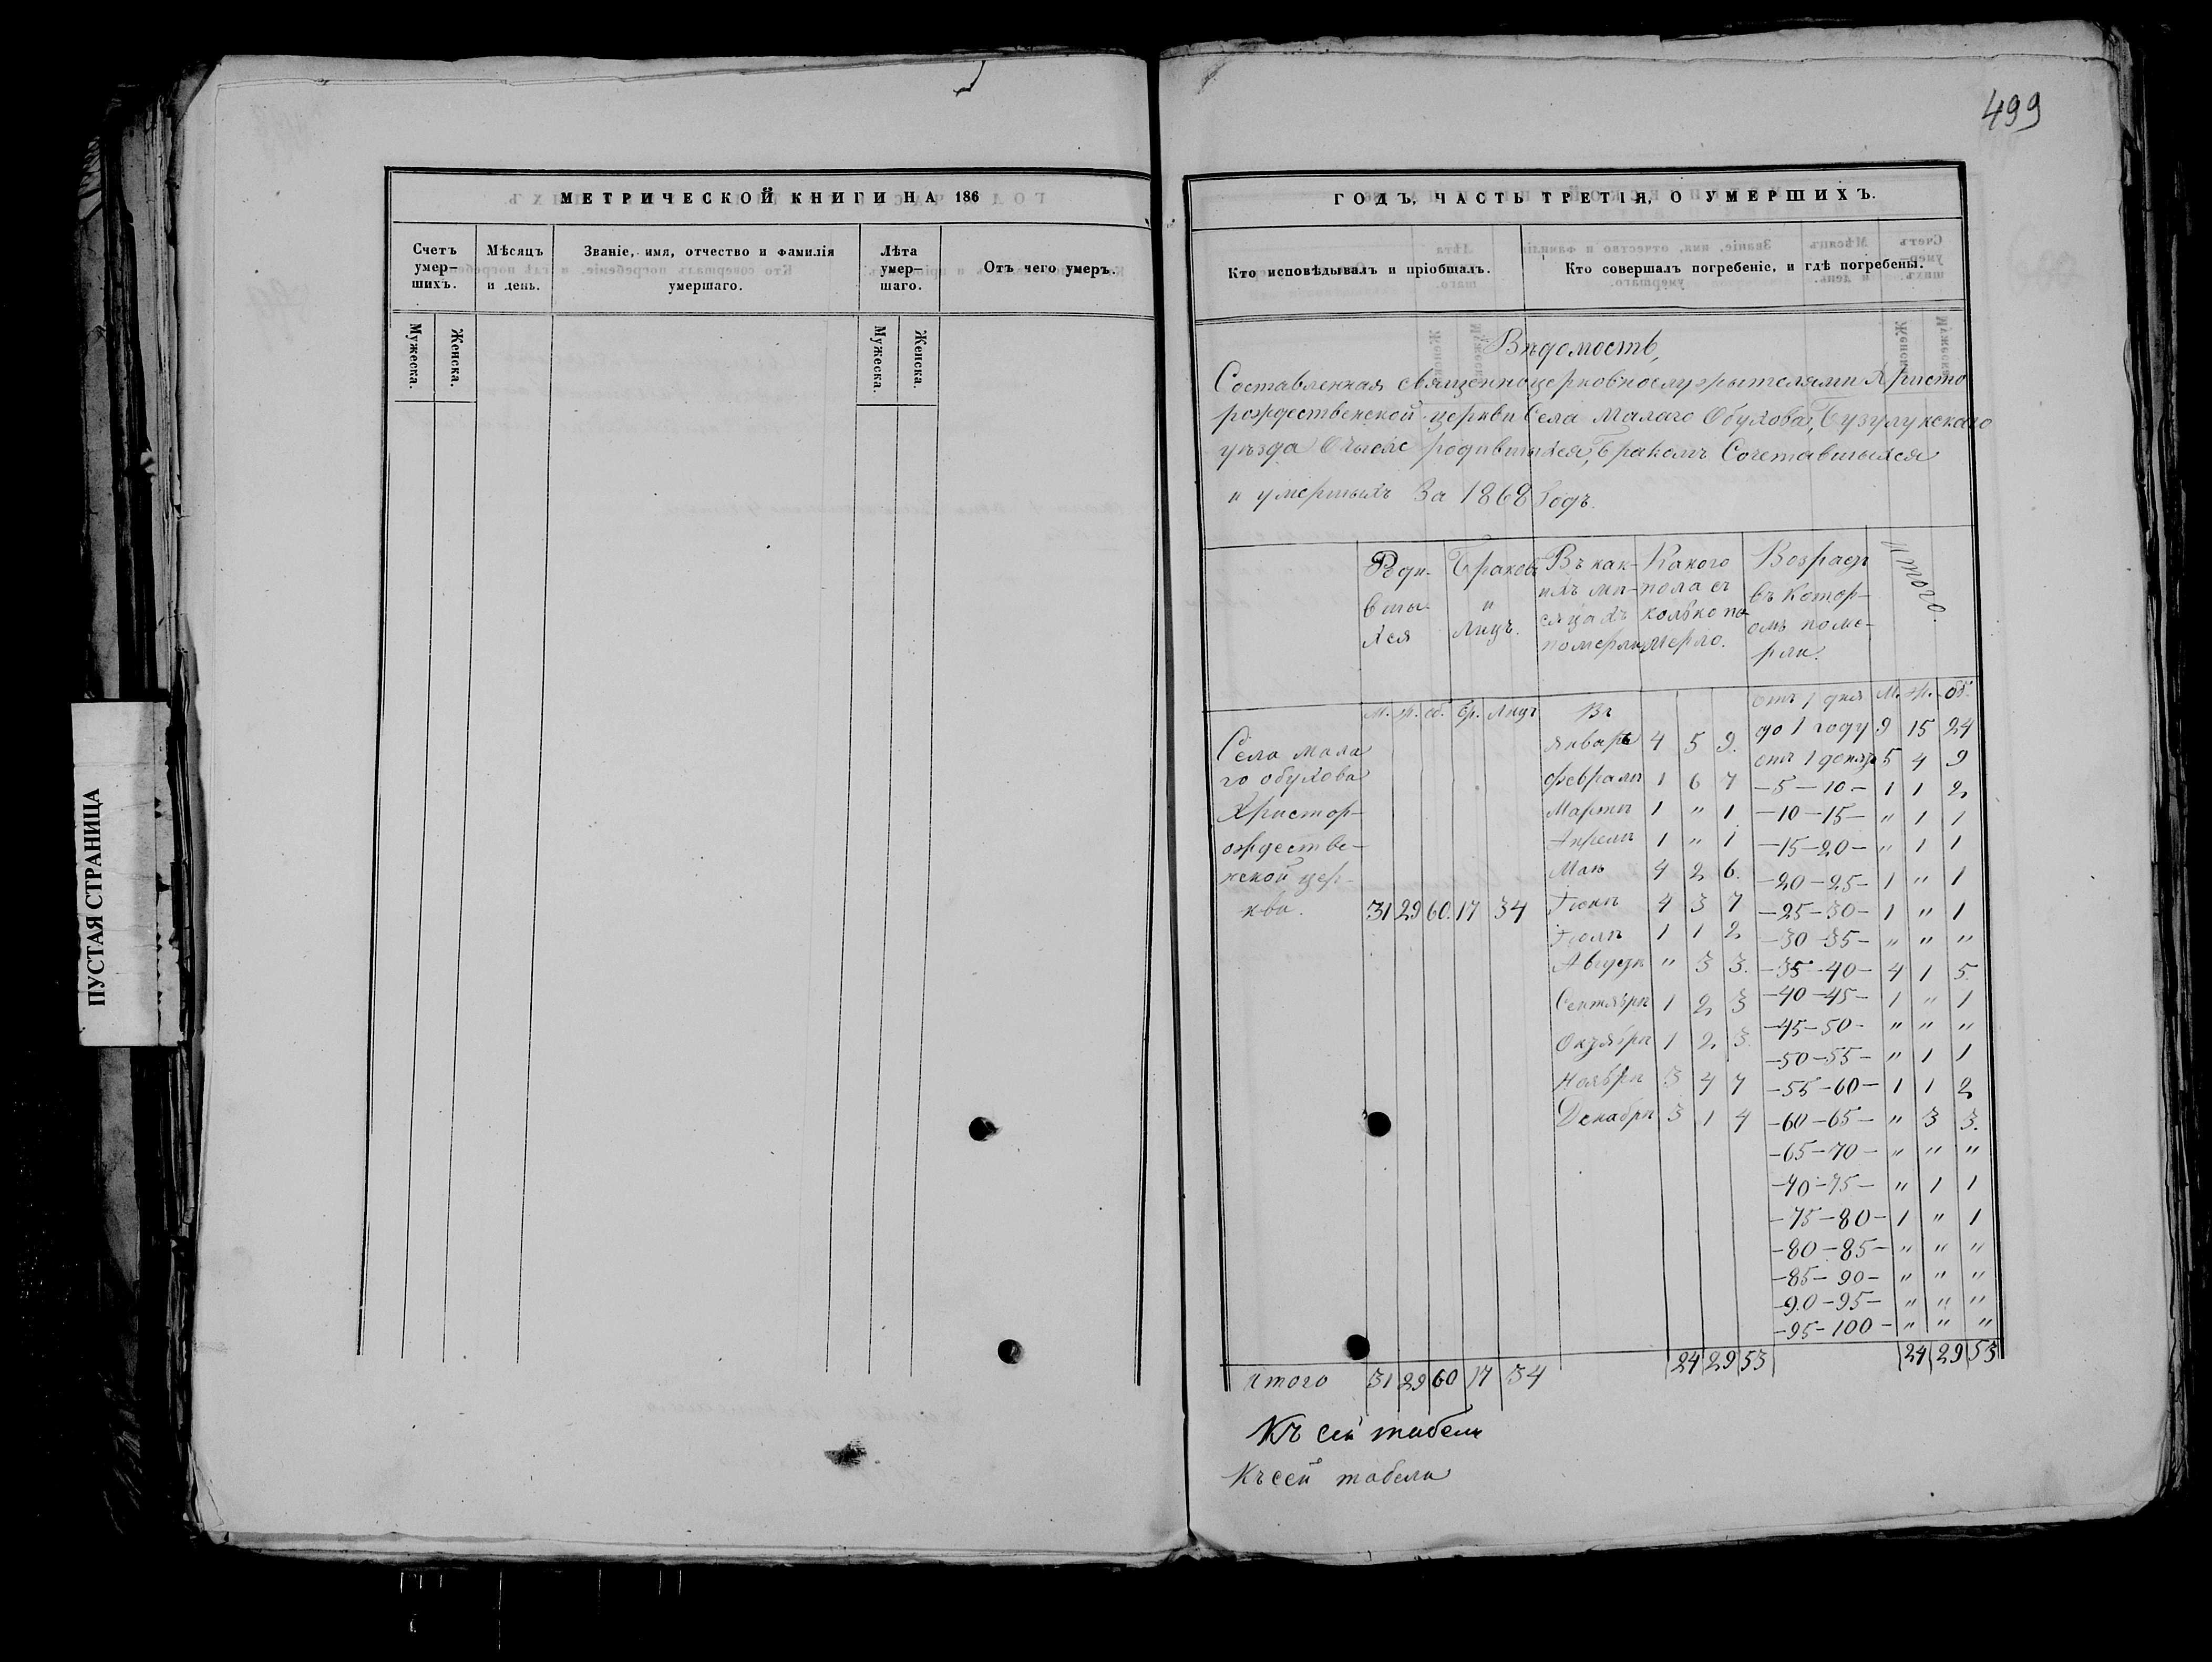 499
МЕТРИЧЕСКОЙ КНИГИ НА 186
Счетъ умер-шихъ.
Мѣсяцъ и день.
Званіе, имя, отчество и фамилія умершаго.
Лѣта умер-шаго.
Отъ чего умеръ.
Мужеска.
Женска.
Мужеска.
Женска.
ПУСТАЯ СТРАНИЦА
ГОДЪ, ЧАСТЬ ТРЕТІЯ, О УМЕРШИХЪ.
Кто исповѣдывалъ и пріобщалъ.
Кто совершалъ погребеніе, и гдѣ погребены.
Вѣдомость,
Составленная священноцерковнослужителями Христо
рождественской церкви Села Малаго Обухова, Бузулукскаго
уѣзда О числѣ родившихся, Бракомъ Сочетавшихся
и умершихъ За 1868 Годъ.
Роди-вши хся
Браковъ и Лицъ.
Въ как-ихъ мѣ-сяцахъ померли
Какого пола с колько по мерло.
Возраст въ Котор-омъ поме-рли.
Итого.
М. ж. об. бр. Лицъ
Въ
отъ 1 дня М. ж. об.
Январѣ 4 5 9. до 1 году 9 15 24
Села Мала
отъ 1 до 5 4 9
го обухова
Февралѣ 1 6 7 -5-10- 1 1 2
Христор-
Мартѣ 1 " 1 -10-15- " 1 1
ождестве-
Апрелѣ 1 " 1 -15-20- " 1 1
нской цер-
Маѣ 4 2 6. -20-25- 1 " 1
кви. 31 29 60. 17 34
Іюнѣ 4 3 7 -25-30- 1 " 1
Іюлѣ 1 1 2 -30-35- " " "
Августѣ " 3 3. -35-40- 4 1 5
Сентябрѣ 1 2 3 -40-45- 1 " 1
-45-50- " " "
Октябрѣ 1 2 3
-50-55- " 1 1
Ноябрѣ 3 4 7 -55-60- 1 1 2
Декабрѣ 3 1 4 -60-65- " 3 3.
-65-70- " " "
-70-75- " 1 1
-75-80- 1 " 1
-80-85- " " "
-85-90- " " "
-90-95- " " "
-95-100- " " "
Итого 31 29 60 17 34 24 29 53 24 29 53
Къ сей табели
Къ сей табели